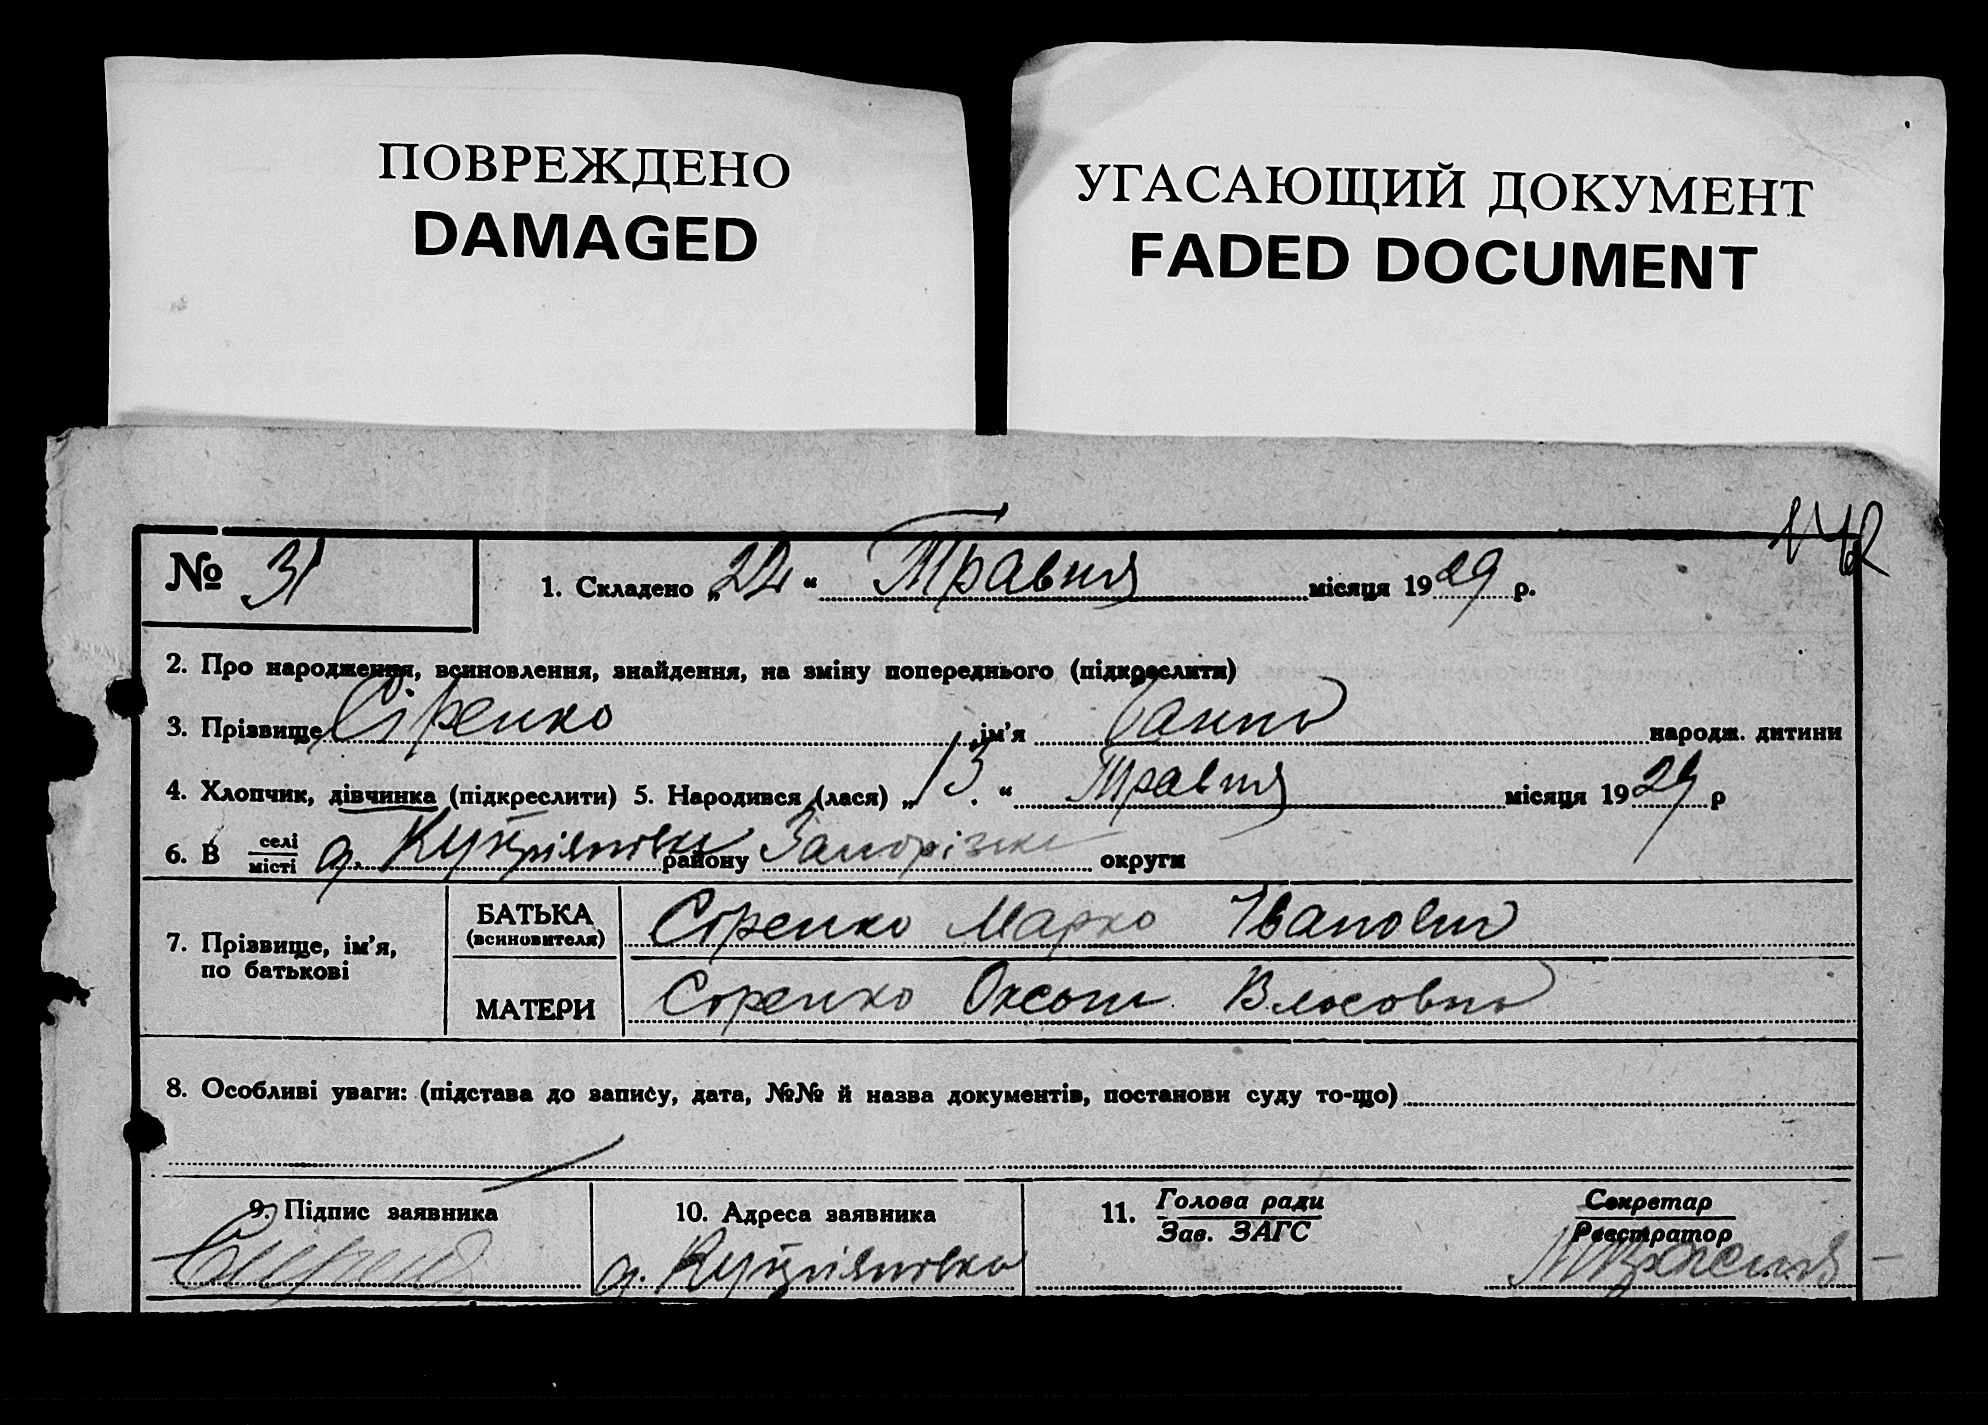 ПОВРЕЖДЕНО
DAMAGED
УГАСАЮЩИЙ ДОКУМЕНТ
FADED DOCUMENT
№ 31
1. Складено „22“ Травня місяця 1929 р.
2. Про народження, всиновлення, знайдення, на зміну попереднього (підкреслити)
3. Прізвище Сіренко ім'я Ганна народж. дитини
4. Хлопчик, дівчинка (підкреслити) 5. Народився (лася) „13“ Травня місяця 1929 р
6. В селі місті д. Купріянівка району Запорізька округи
7. Прізвище, ім'я, по батькові
БАТЬКА (всиновителя) Сіренко Марко Іванович
МАТЕРИ Сіренко Оксана Власовна
8. Особливі уваги: (підстава до запису, дата, №№ й назва документів, постанови суду то-що)
9. Підпис заявника
10. Адреса заявника
д. Купріянівка
11. Голова ради
Зав. ЗАГС
Секретар
Реєстратор